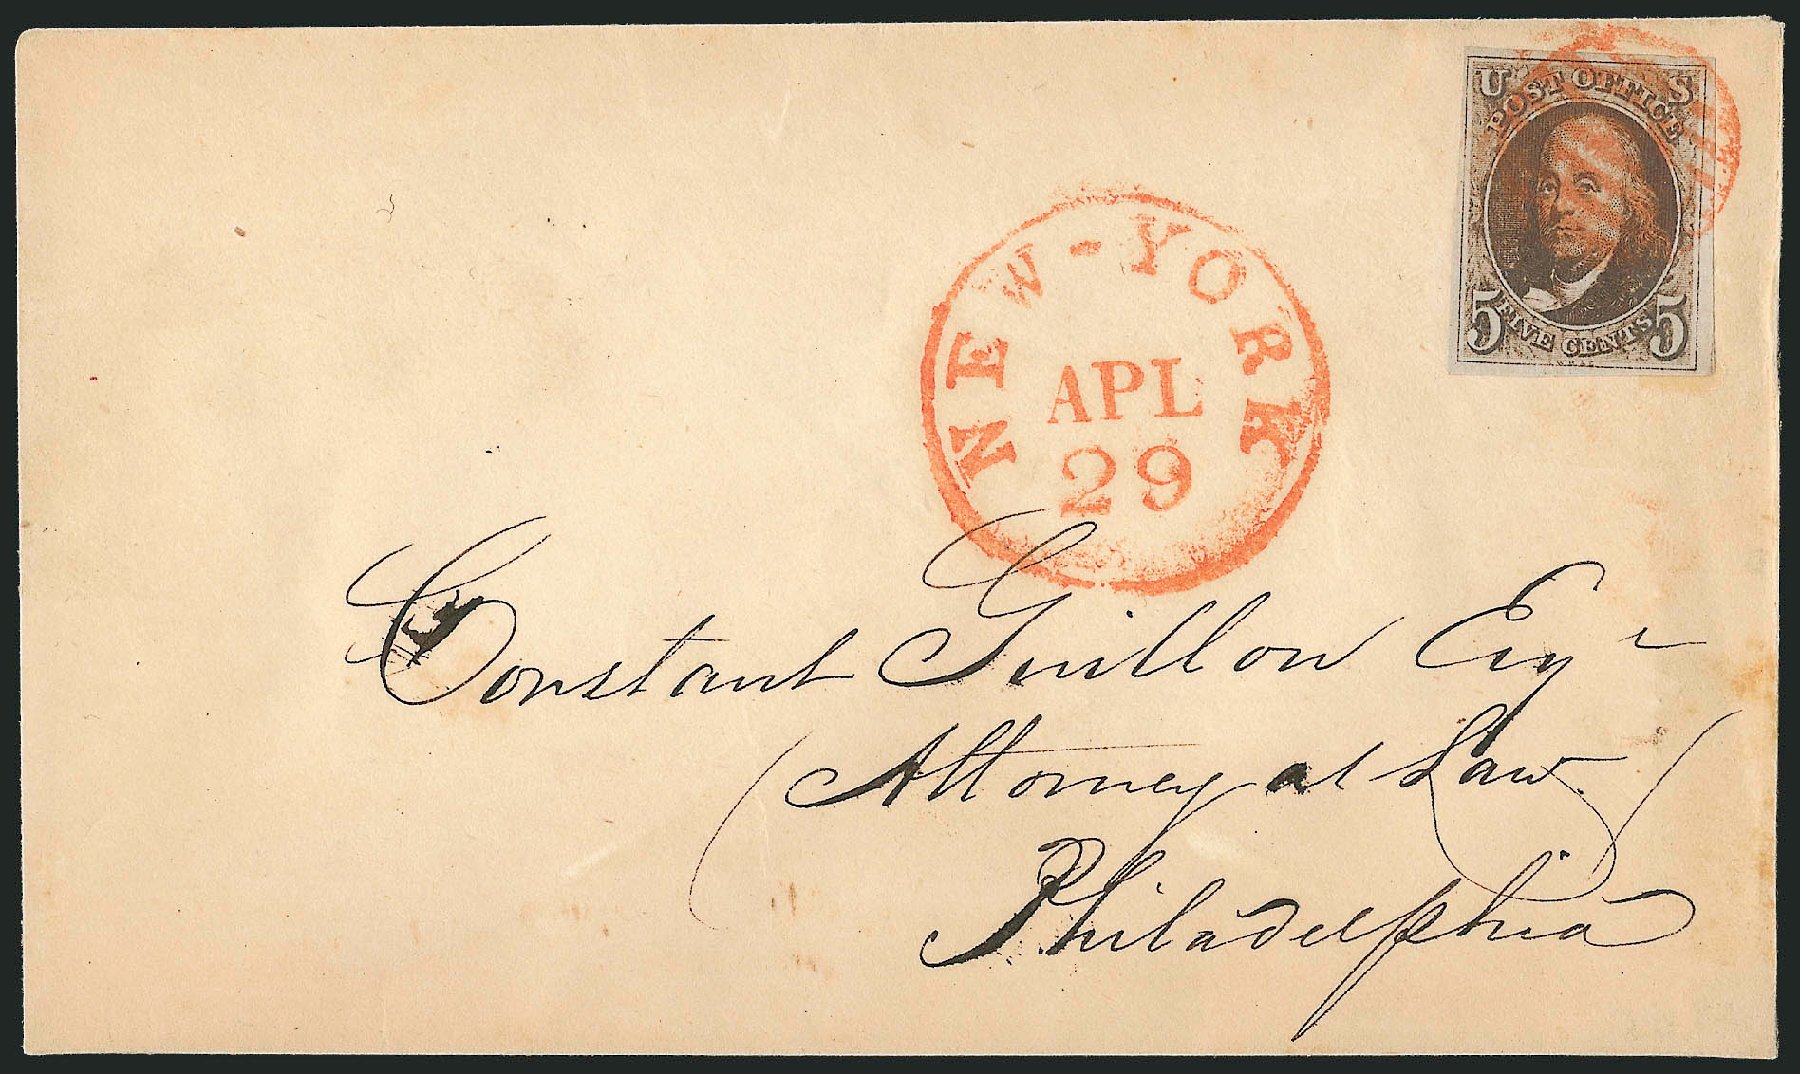 U S
POST OFFICE
5 FIVE CENTS 5
NEW-YORK
APL
29
Constant Guillou Esqr
Attorney at Law
Philadelphia